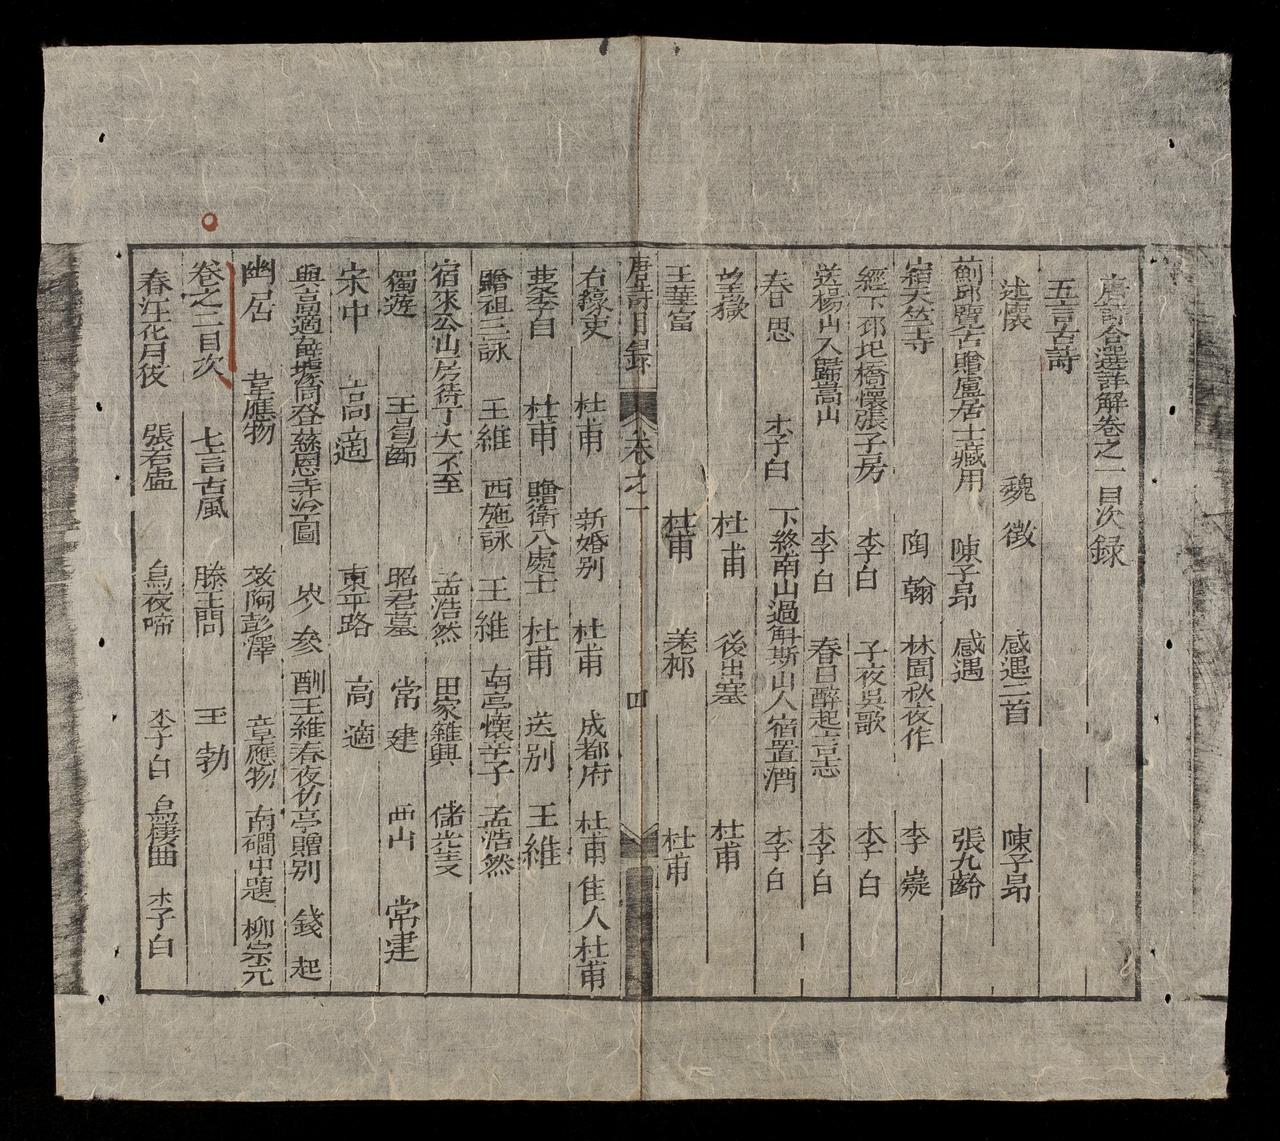 唐詩合選詳解卷之一目次錄
五言古詩
述懷 魏徵 感遇二首 陳子昂
薊邱覽古贈盧居士藏用 陳子昂 感遇 張九齡
宿天竺寺 陶翰 林園秋夜作 李嶷
經下邳圯橋懷張子房 李白 子夜吳歌 李白
送楊山人歸嵩山 李白 春日醉起言志 李白
春思 李白 下終南山過斛斯山人宿置酒 李白
望嶽 杜甫 後出塞 杜甫
玉華宮 杜甫 羌邨 杜甫
唐詩目錄 卷之一 四
石壕吏 杜甫 新婚別 杜甫 成都府 杜甫 佳人 杜甫
夢李白 杜甫 贈衛八處士 杜甫 送別 王維
贈祖三詠 王維 西施詠 王維 南亭懷辛子 孟浩然
宿來公山房待丁大不至 孟浩然 田家雜興 儲光羲
獨遊 王昌齡 昭君墓 常建 西山 常建
宋中 高適 東平路 高適
與高適薛璩同登慈恩寺浮圖 岑參 酬王維春夜竹亭贈別 錢起
幽居 韋應物 效陶彭澤 韋應物 南磵中題 柳宗元
卷之二目次 七言古風 滕王閣 王勃
春江花月夜 張若虛 烏夜啼 李白 烏棲曲 李白